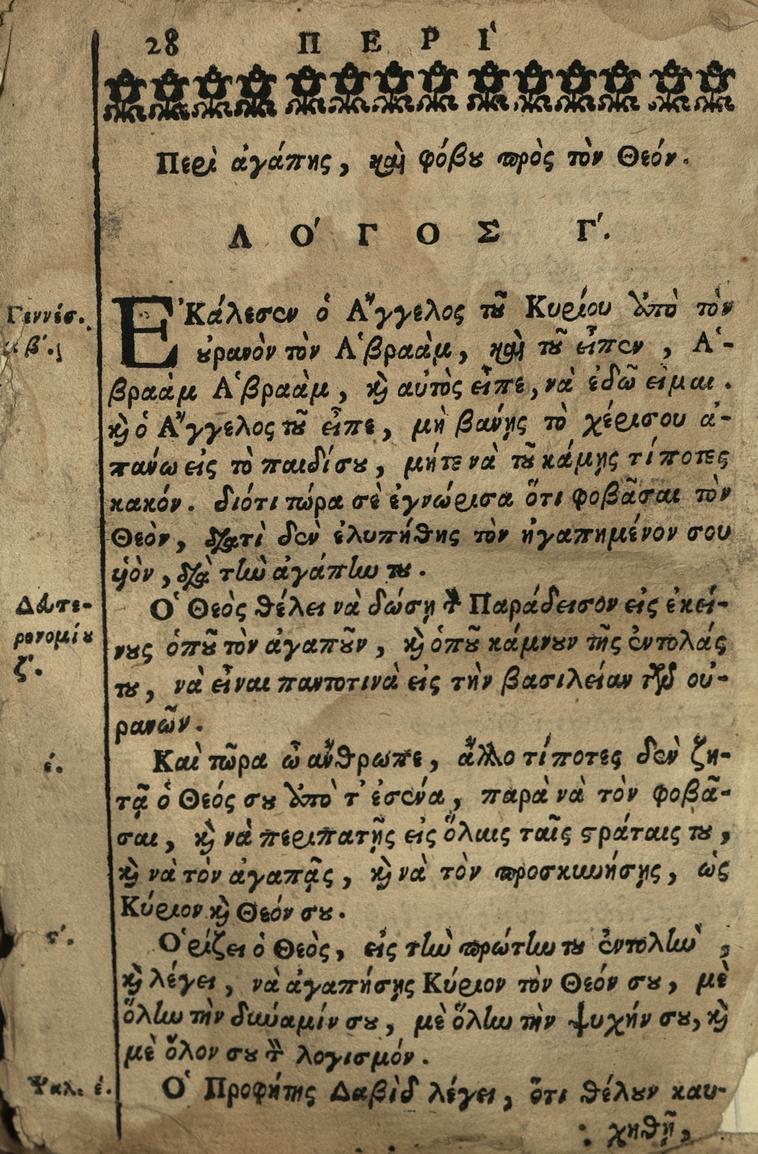 28 ΠΕΡΙ`
Περὶ ἀγάπης, καὶ φόβου πρὸς τὸν Θεόν.
ΛΟ´ΓΟΣ Γ´.
Γεννέσ.
κβ´.
Ε᾿Κάλεσεν ὁ Α῎γγελος τοῦ Κυρίου ἀπὸ τὸν
οὐρανὸν τὸν Α᾿βραὰμ, καὶ τοῦ εἶπεν, Α᾿-
βραὰμ Α᾿βραὰμ, καὶ αὐτὸς εἶπε, νὰ ἐδῶ εἶμαι.
καὶ ὁ Α῎γγελος τοῦ εἶπε, μὴ βανῃς τὸ χέρισου ἀ-
πάνω εἰς τὸ παιδίσου, μήτε νὰ τοῦ κάμῃς τίποτες
κακόν. διότι τώρα σὲ ἐγνώρισα ὅτι φοβᾶσαι τὸν
Θεὸν, διατὶ δὲν ἐλυπήθης τὸν ἠγαπημένον σου
υἱὸν, διὰ τὴν ἀγάπην του.
Δευτε-
ρονομίου
ζ´.
Ο῾ Θεὸς θέλει νὰ δώσῃ τὸν Παράδεισον εἰς ἐκεί-
νους ὁποῦ τὸν ἀγαποῦν, καὶ ὁποῦ κάμνουν τῆς ἐντολάς
του, νὰ εἶναι παντοτινὰ εἰς τὴν βασιλείαν τῶν οὐ-
ρανῶν.
ί.
Καὶ τῶρα ὦ ἄνθρωπε, ἄλλο τίποτες δὲν ζη-
τᾷ ὁ Θεός σου ἀπὸ τ᾿ ἐσένα, παρὰ νὰ τὸν φοβᾶ-
σαι, καὶ νὰ περιπατῇς εἰς ὅλαις ταῖς στράταις του,
καὶ νὰ τὸν ἀγαπᾷς, καὶ νὰ τὸν προσκυνήσῃς, ὡς
Κύριον καὶ Θεόν σου.
ϛ´.
Ο῾ρίζει ὁ Θεὸς, εἰς τὴν πρώτην του ἐντολὴν,
καὶ λέγει, νὰ ἀγαπήσῃς Κύριον τὸν Θεόν σου, μὲ
ὅλην τὴν δύναμίν σου, μὲ ὅλην τὴν ψυχήν σου, καὶ
μὲ ὅλον σου τὸν λογισμόν.
Ψαλ. έ.
Ο῾ Προφήτης Δαβὶδ λέγει, ὅτι θέλουν καυ-
χηθῇ,